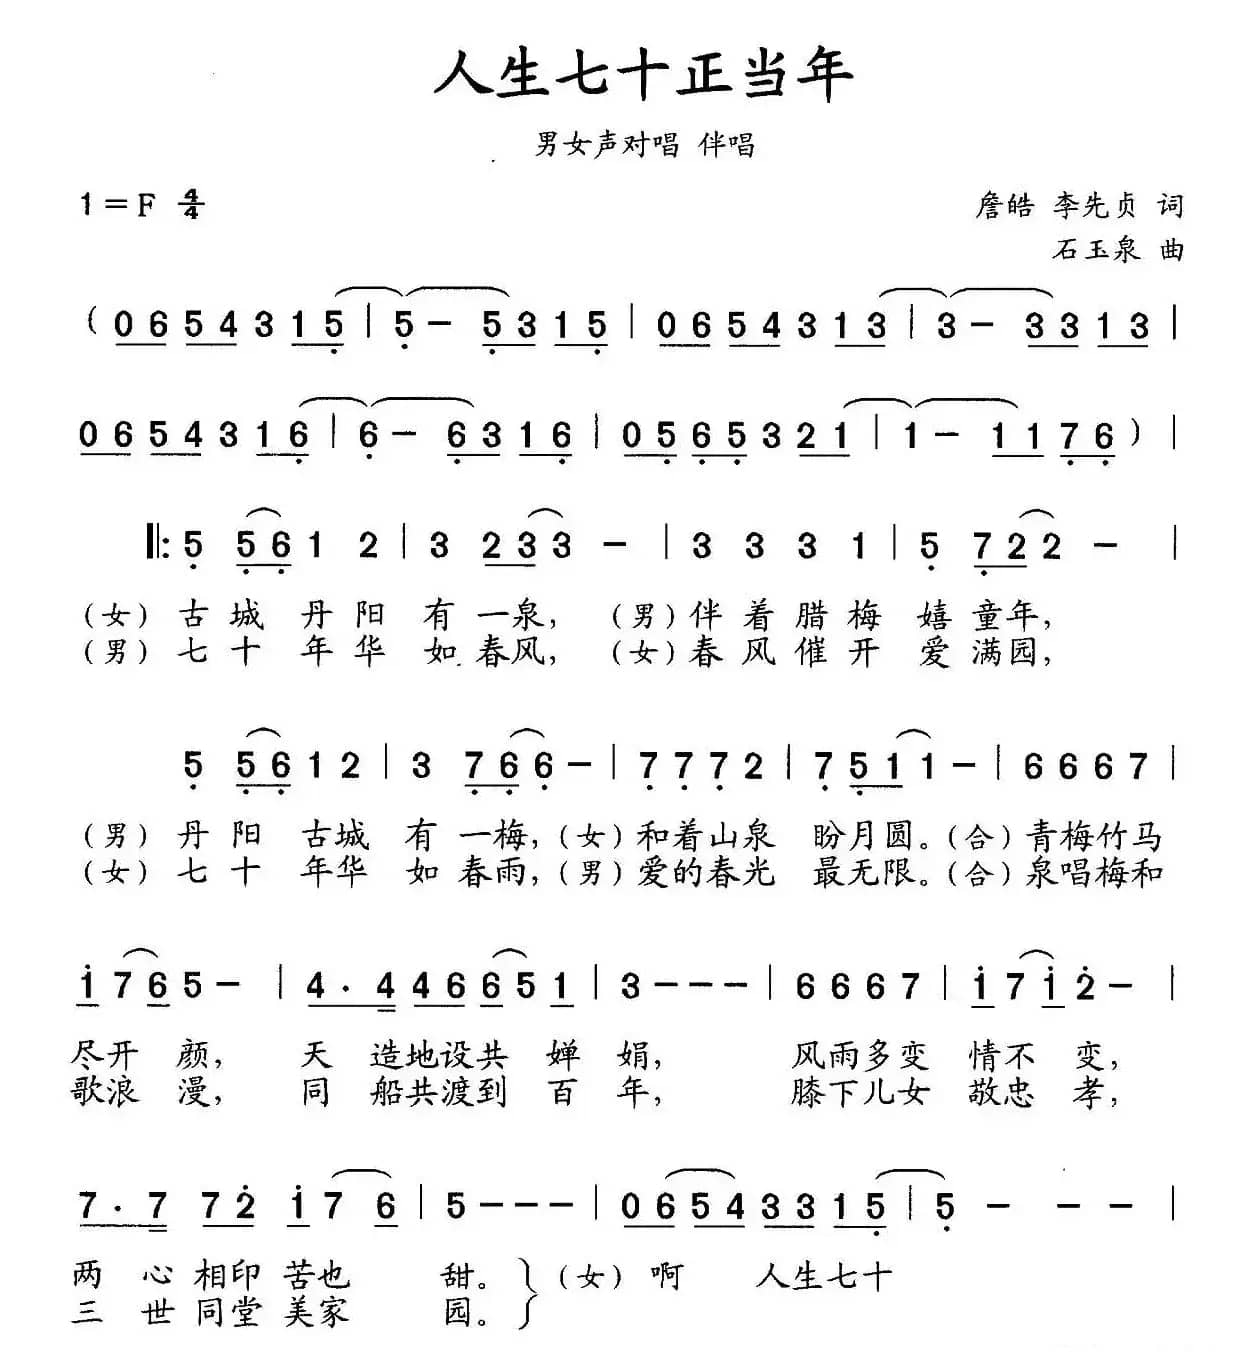 人生七十正当年
男女声对唱 伴唱
1=F 4/4
詹皓 李先贞 词
石玉泉 曲
( 0 6 5 4 3 1 5 | 5 - 5 3 1 5 | 0 6 5 4 3 1 3 | 3 - 3 3 1 3 |
0 6 5 4 3 1 6 | 6 - 6 3 1 6 | 0 5 6 5 3 2 1 | 1 - 1 1 7 6 ) |
‖: 5 5 6 1 2 | 3 2 3 3 - | 3 3 3 1 | 5 7 2 2 - |
(女) 古城 丹阳 有一泉, (男) 伴着腊梅 嬉童年,
(男) 七十 年华 如春风, (女) 春风催开 爱满园,
5 5 6 1 2 | 3 7 6 6 - | 7 7 7 2 | 7 5 1 1 - | 6 6 6 7 |
(男) 丹阳 古城 有一梅, (女) 和着山泉 盼月圆。(合) 青梅竹马
(女) 七十 年华 如春雨, (男) 爱的春光 最无限。(合) 泉唱梅和
1 7 6 5 - | 4 . 4 4 6 6 5 1 | 3 - - - | 6 6 6 7 | 1 7 1 2 - |
尽开颜, 天 造地设共 婵娟, 风雨多变 情不变,
歌浪漫, 同 船共渡到 百年, 膝下儿女 敬忠孝,
7 . 7 7 2 1 7 6 | 5 - - - | 0 6 5 4 3 3 1 5 | 5 - - - |
两 心相印 苦也 甜。 (女) 啊 人生七十
三 世同堂 美家 园。